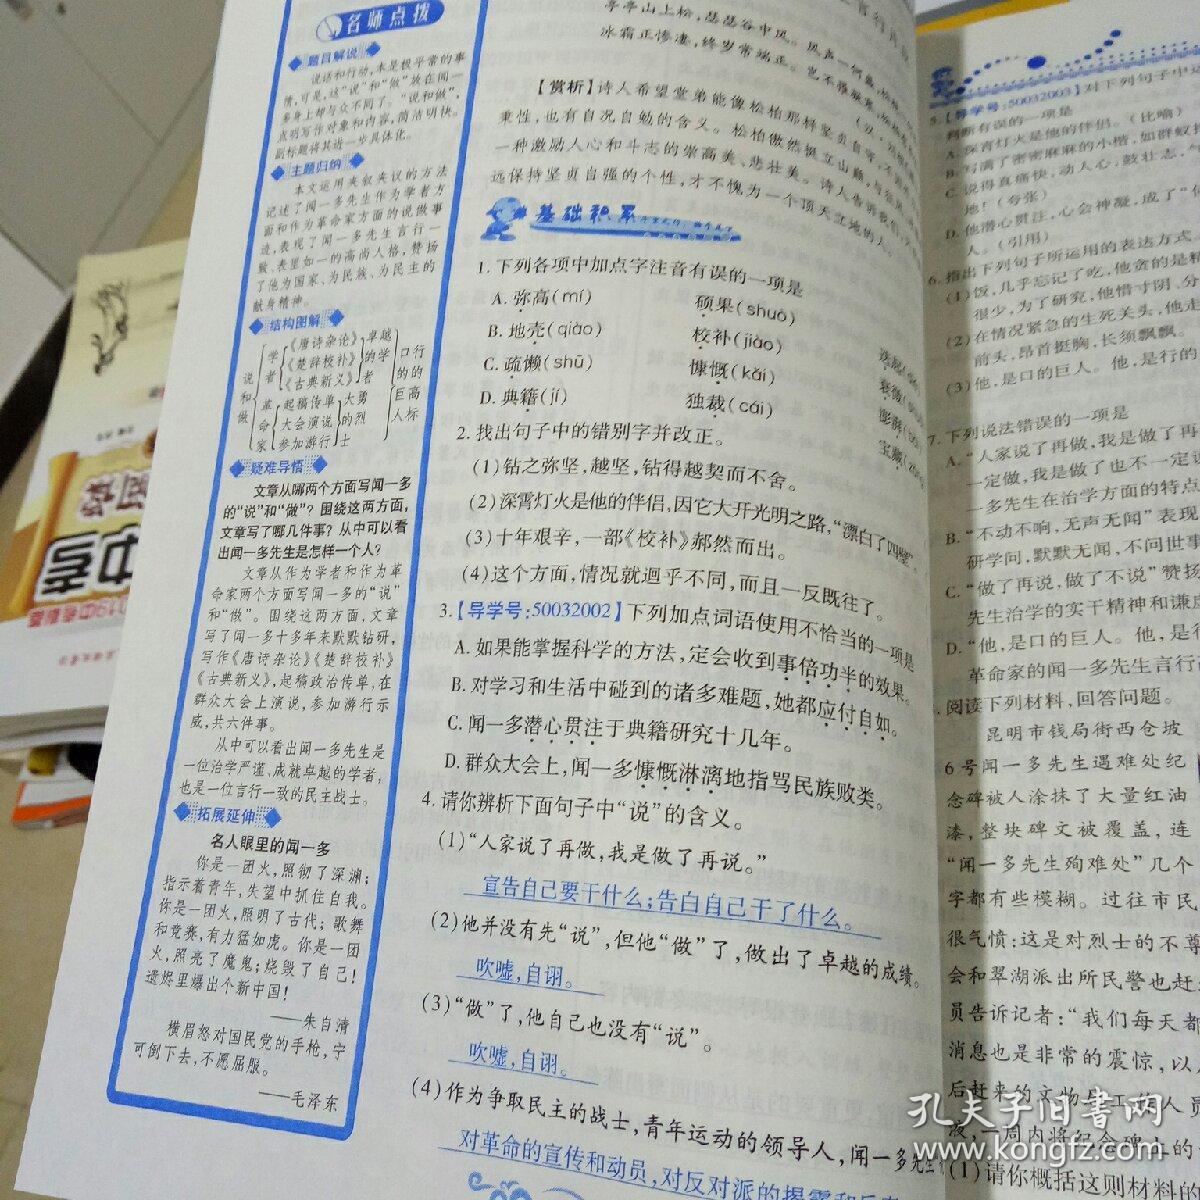 名师点拨
题目解说
说话和行动,本是极平常的事
情,可是,这“说”和“做”放在闻一
多身上却与众不同了。“说和做”,
点明写作对象和内容,简洁明快。
副标题将其进一步具体化。
主题归纳
本文运用夹叙夹议的方法
记述了闻一多先生作为学者方
面和作为革命家方面的说做事
迹,表现了闻一多先生言行一
致、表里如一的高尚人格,赞扬
了他为国家、为民族、为民主的
献身精神。
结构图解
说和做
学者
《唐诗杂论》
《楚辞校补》
《古典新义》
卓越的学者
革命家
起稿传单
大会演说
参加游行
大勇的烈士
口行的的巨高人标
疑难导悟
文章从哪两个方面写闻一多
的“说”和“做”?围绕这两方面,
文章写了哪几件事?从中可以看
出闻一多先生是怎样一个人?
文章从作为学者和作为革
命家两个方面写闻一多的“说”
和“做”。围绕这两方面,文章
写了闻一多十多年来默默钻研,
写作《唐诗杂论》《楚辞校补》
《古典新义》,起稿政治传单,在
群众大会上演说,参加游行示
威,共六件事。
从中可以看出闻一多先生是
一位治学严谨、成就卓越的学者;
也是一位言行一致的民主战士。
拓展延伸
名人眼里的闻一多
你是一团火,照彻了深渊;
指示着青年,失望中抓住自我。
你是一团火,照明了古代;歌舞
和竞赛,有力猛如虎。你是一团
火,照亮了魔鬼;烧毁了自己!
遗烬里爆出个新中国!
——朱自清
横眉怒对国民党的手枪,宁
可倒下去,不愿屈服。
——毛泽东
亭亭山上松,瑟瑟谷中风。风声一何盛,
冰霜正惨凄,终岁常端正。岂不罹凝寒,
【赏析】诗人希望堂弟能像松柏那样坚贞自守,
秉性,也有自况自勉的含义。松柏傲然挺立山巅,与
一种激励人心和斗志的崇高美、悲壮美。诗人告诉我们,
远保持坚贞自强的个性,才不愧为一个顶天立地的人。
基础积累
1.下列各项中加点字注音有误的一项是
A.弥高(mí) 硕果(shuò)
B.地壳(qiào) 校补(jiào)
C.疏懒(shū) 慷慨(kǎi)
D.典籍(jí) 独裁(cái)
2.找出句子中的错别字并改正。
(1)钻之弥坚,越坚,钻得越契而不舍。
(2)深霄灯火是他的伴侣,因它大开光明之路,“漂白了四壁”。
(3)十年艰辛,一部《校补》郝然而出。
(4)这个方面,情况就迥乎不同,而且一反既往了。
3.【导学号:50032002】下列加点词语使用不恰当的一项是
A.如果能掌握科学的方法,定会收到事倍功半的效果。
B.对学习和生活中碰到的诸多难题,她都应付自如。
C.闻一多潜心贯注于典籍研究十几年。
D.群众大会上,闻一多慷慨淋漓地指骂民族败类。
4.请你辨析下面句子中“说”的含义。
(1)“人家说了再做,我是做了再说。”
宣告自己要干什么;告白自己干了什么。
(2)他并没有先“说”,但他“做”了,做出了卓越的成绩。
吹嘘,自诩。
(3)“做”了,他自己也没有“说”。
吹嘘,自诩。
(4)作为争取民主的战士,青年运动的领导人,闻一多先生
对革命的宣传和动员,对反对派的揭露和
5.【导学号:50032003】对下列句子中运
判断有误的一项是
A.深宵灯火是他的伴侣。(比喻)
B.写满了密密麻麻的小楷,如群蚁
C.说得真痛快,动人心,鼓壮志,气
地!(夸张)
D.他潜心贯注,心会神凝,成了“
人。(引用)
6.指出下列句子所运用的表达方式
(1)饭,几乎忘记了吃,他贪的是精
很少,为了研究,他惜寸阴,分
(2)在情况紧急的生死关头,他走
前头,昂首挺胸,长须飘飘。
(3)他,是口的巨人。他,是行的
7.下列说法错误的一项是
A.“人家说了再做,我是做了再
一定做,我是做了也不一定说
一多先生在治学方面的特点
B.“不动不响,无声无闻”表现
研学问,默默无闻,不问世事
C.“做了再说,做了不说”赞扬
先生治学的实干精神和谦虚
D.“他,是口的巨人。他,是行
革命家的闻一多先生言行
阅读下列材料,回答问题。
昆明市钱局街西仓坡
6号闻一多先生遇难处纪
念碑被人涂抹了大量红油
漆,整块碑文被覆盖,连
“闻一多先生殉难处”几个
字都有些模糊。过往市民
很气愤:这是对烈士的不尊
会和翠湖派出所民警也赶
员告诉记者:“我们每天都
消息也是非常的震惊,以
后赶来的文物
一周内将纪念碑上的
(1)请你概括这则材料的
孔夫子旧书网
www.kongfz.com